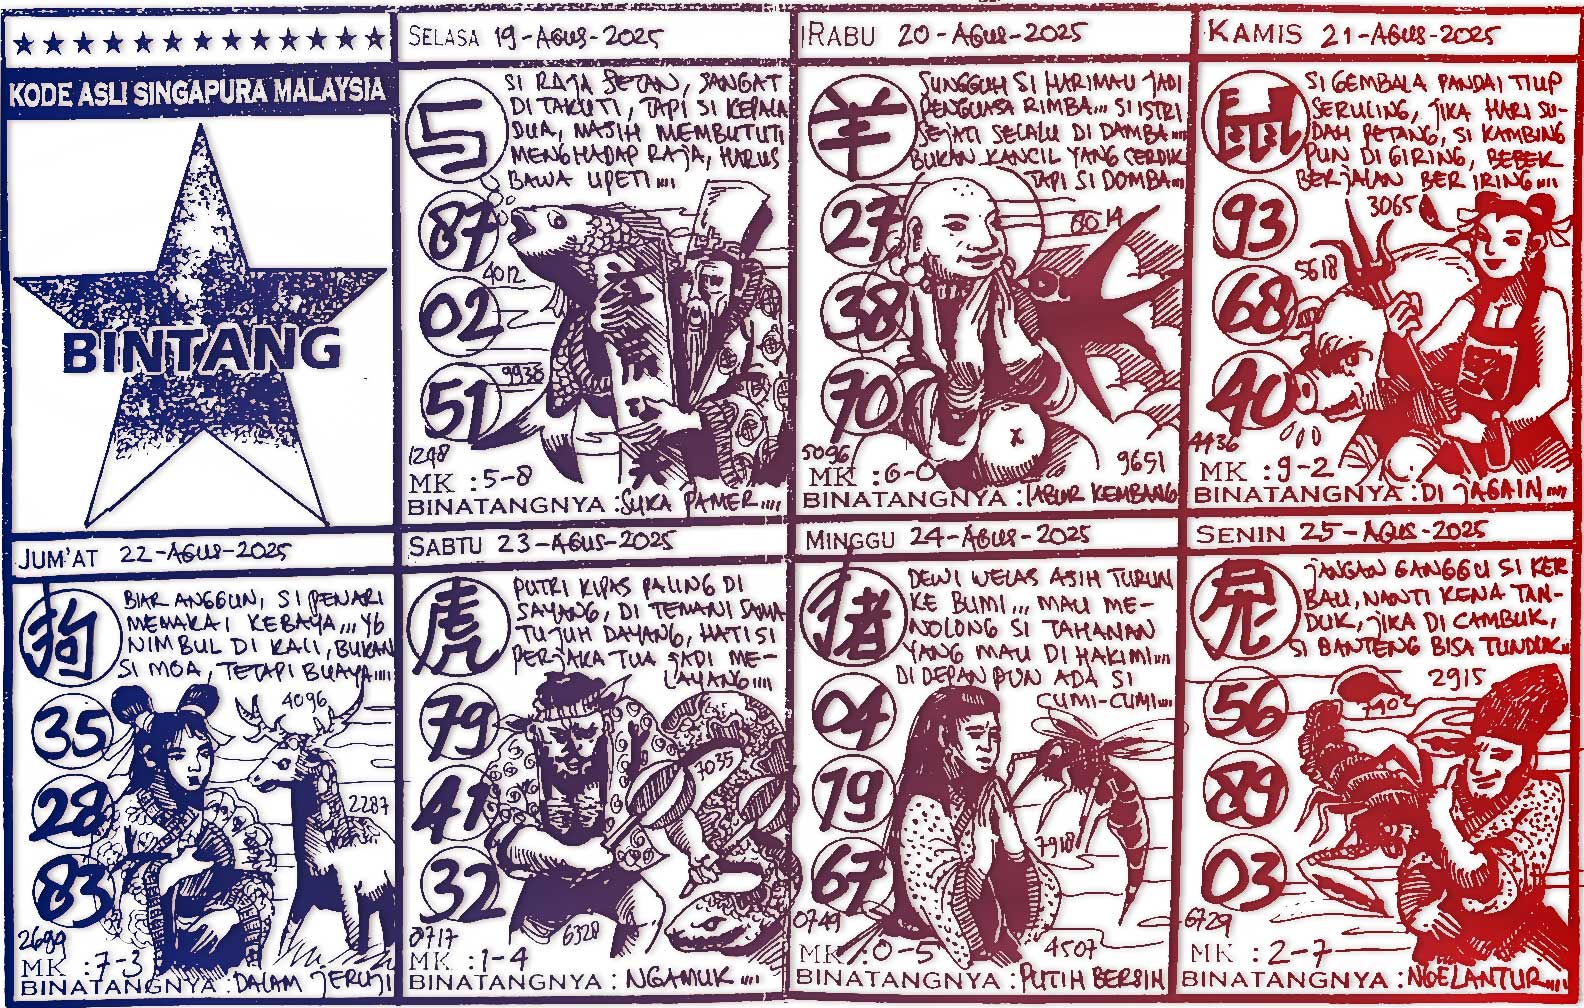 KODE ASLI SINGAPURA MALAYSIA
BINTANG
SELASA 19-AGUS-2025
SI RAJA SETAN, SANGAT
DI TAKUTI, TAPI SI KEPALA
DUA, MASIH MEMBUTUTI
MENGHADAP RAJA, HARUS
BAWA UPETI....
87
4012
02
9936
51
1248
MK : 5-8
BINATANGNYA : SUKA PAMER....
RABU 20-AGUS-2025
羊
SUNGGUH SI HARIMAU JADI
PENGUASA RIMBA... SI ISTRI
SEJATI SELALU DI DAMBA...
BUKAN KANCIL YANG CERDIK
TAPI SI DOMBA....
27
8014
38
70
5096
9651
MK : 6-0
BINATANGNYA : TABUR KEMBANG
KAMIS 21-AGUS-2025
鼠
SI GEMBALA PANDAI TIUP
SERULING, JIKA HARI SU-
DAH PETANG, SI KAMBING
PUN DI GIRING, BEBEK
BERJALAN BER IRING....
93
3065
5618
68
40
4436
MK : 9-2
BINATANGNYA : DI JAGAIN....
JUM'AT 22-AGUS-2025
狗
BIAR ANGGUN, SI PENARI
MEMAKAI KEBAYA... YG
NIMBUL DI KALI, BUKAN
SI MOA, TETAPI BUAYA....
35
4096
28
2287
83
2699
MK : 7-3
BINATANGNYA : DALAM JERUJI
SABTU 23-AGUS-2025
虎
PUTRI KIPAS PALING DI
SAYANG, DI TEMANI SAMA
TUJUH DAYANG, HATI SI
PERJAKA TUA JADI ME-
LAYANG....
79
7035
41
32
0717
6328
MK : 1-4
BINATANGNYA : NGAMUK....
MINGGU 24-AGUS-2025
猪
DEWI WELAS ASIH TURUN
KE BUMI... MAU ME-
NOLONG SI TAHANAN
YANG MAU DI HAKIMI....
DI DEPAN PUN ADA SI
CUMI-CUMI....
04
19
7918
67
0749
4507
MK : 0-5
BINATANGNYA : PUTIH BERSIH
SENIN 25-AGUS-2025
JANGAN GANGGU SI KER
BAU, NANTI KENA TAN-
DUK, JIKA DI CAMBUK,
SI BANTENG BISA TUNDUK..
2915
56
7402
89
03
6729
MK : 2-7
BINATANGNYA : NGELANTUR....